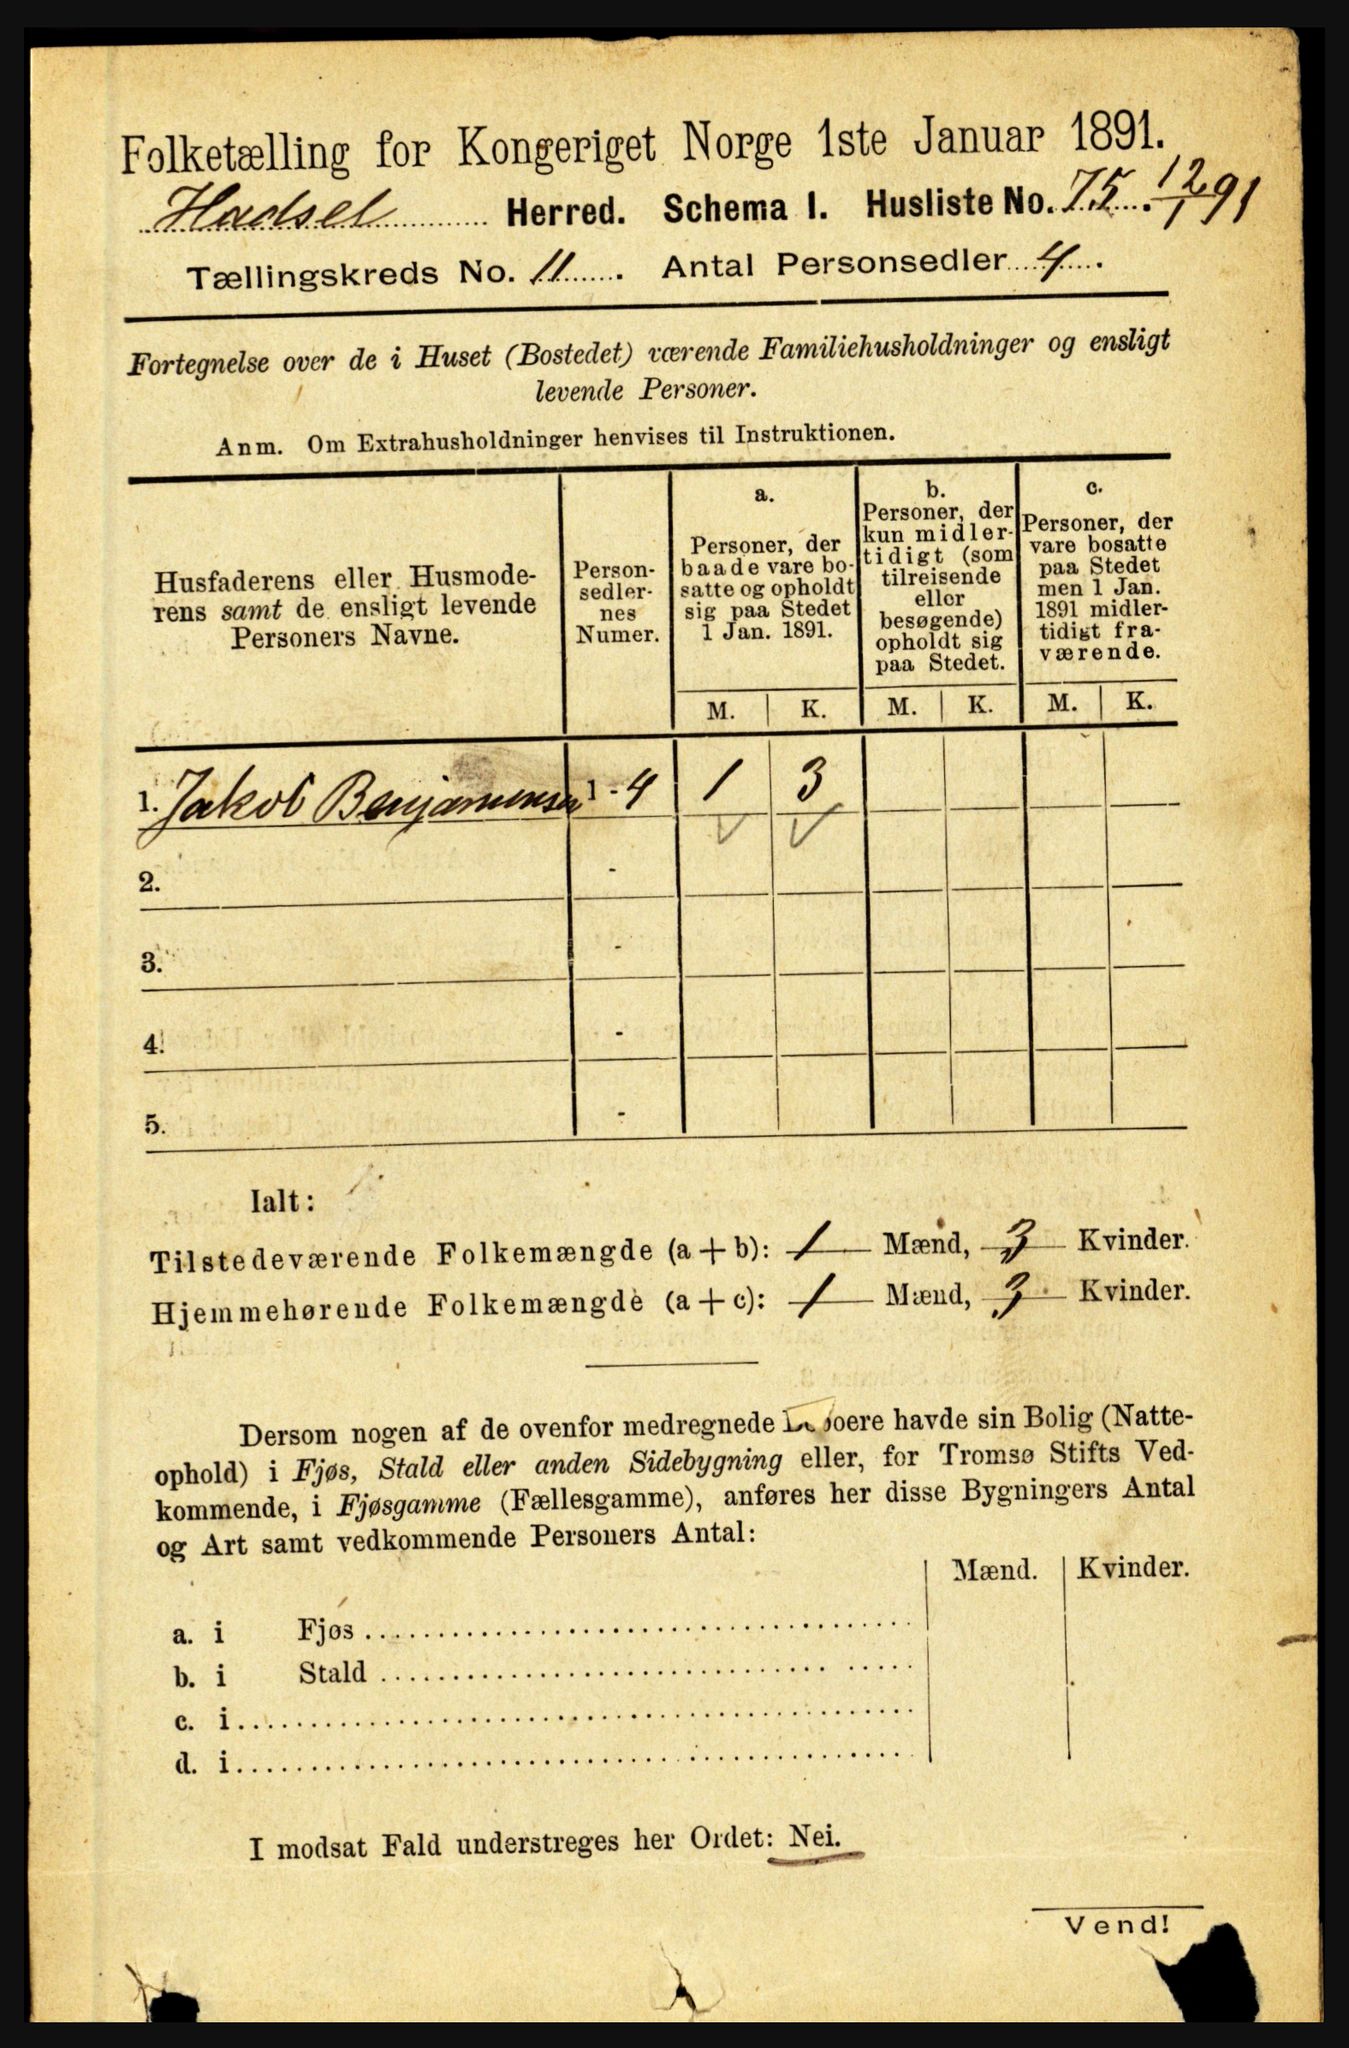 Folketælling for Kongeriget Norge 1ste Januar 1891.
Hadsel Herred. Schema I. Husliste No. 75. 12/1 91
Tællingskreds No. 11. Antal Personsedler 4.
Fortegnelse over de i Huset (Bostedet) værende Familiehusholdninger og ensligt
levende Personer.
Anm. Om Extrahusholdninger henvises til Instruktionen.
Husfaderens eller Husmode-
rens samt de ensligt levende
Personers Navne.
Person-
sedler-
nes
Numer.
a.
Personer, der
baade vare bo-
satte og opholdt
sig paa Stedet
1 Jan. 1891.
b.
Personer, der
kun midler-
tidigt (som
tilreisende
eller
besøgende)
opholdt sig
paa Stedet.
c.
Personer, der
vare bosatte
paa Stedet
men 1 Jan.
1891 midler-
tidigt fra-
værende.
M. K. M. K. M. K.
1. Jakob Benjaminsen 1 - 4 1 3
2. -
3. -
4. -
5. -
Ialt:
Tilstedeværende Folkemængde (a + b): 1 Mænd, 3 Kvinder.
Hjemmehørende Folkemængde (a + c): 1 Mænd, 3 Kvinder.
Dersom nogen af de ovenfor medregnede havde sin Bolig (Natte-
ophold) i Fjøs, Stald eller anden Sidebygning eller, for Tromsø Stifts Ved-
kommende, i Fjøsgamme (Fællesgamme), anføres her disse Bygningers Antal
og Art samt vedkommende Personers Antal:
Mænd. Kvinder.
a. i Fjøs
b. i Stald
c. i
d. i
I modsat Fald understreges her Ordet: Nei.
Vend!